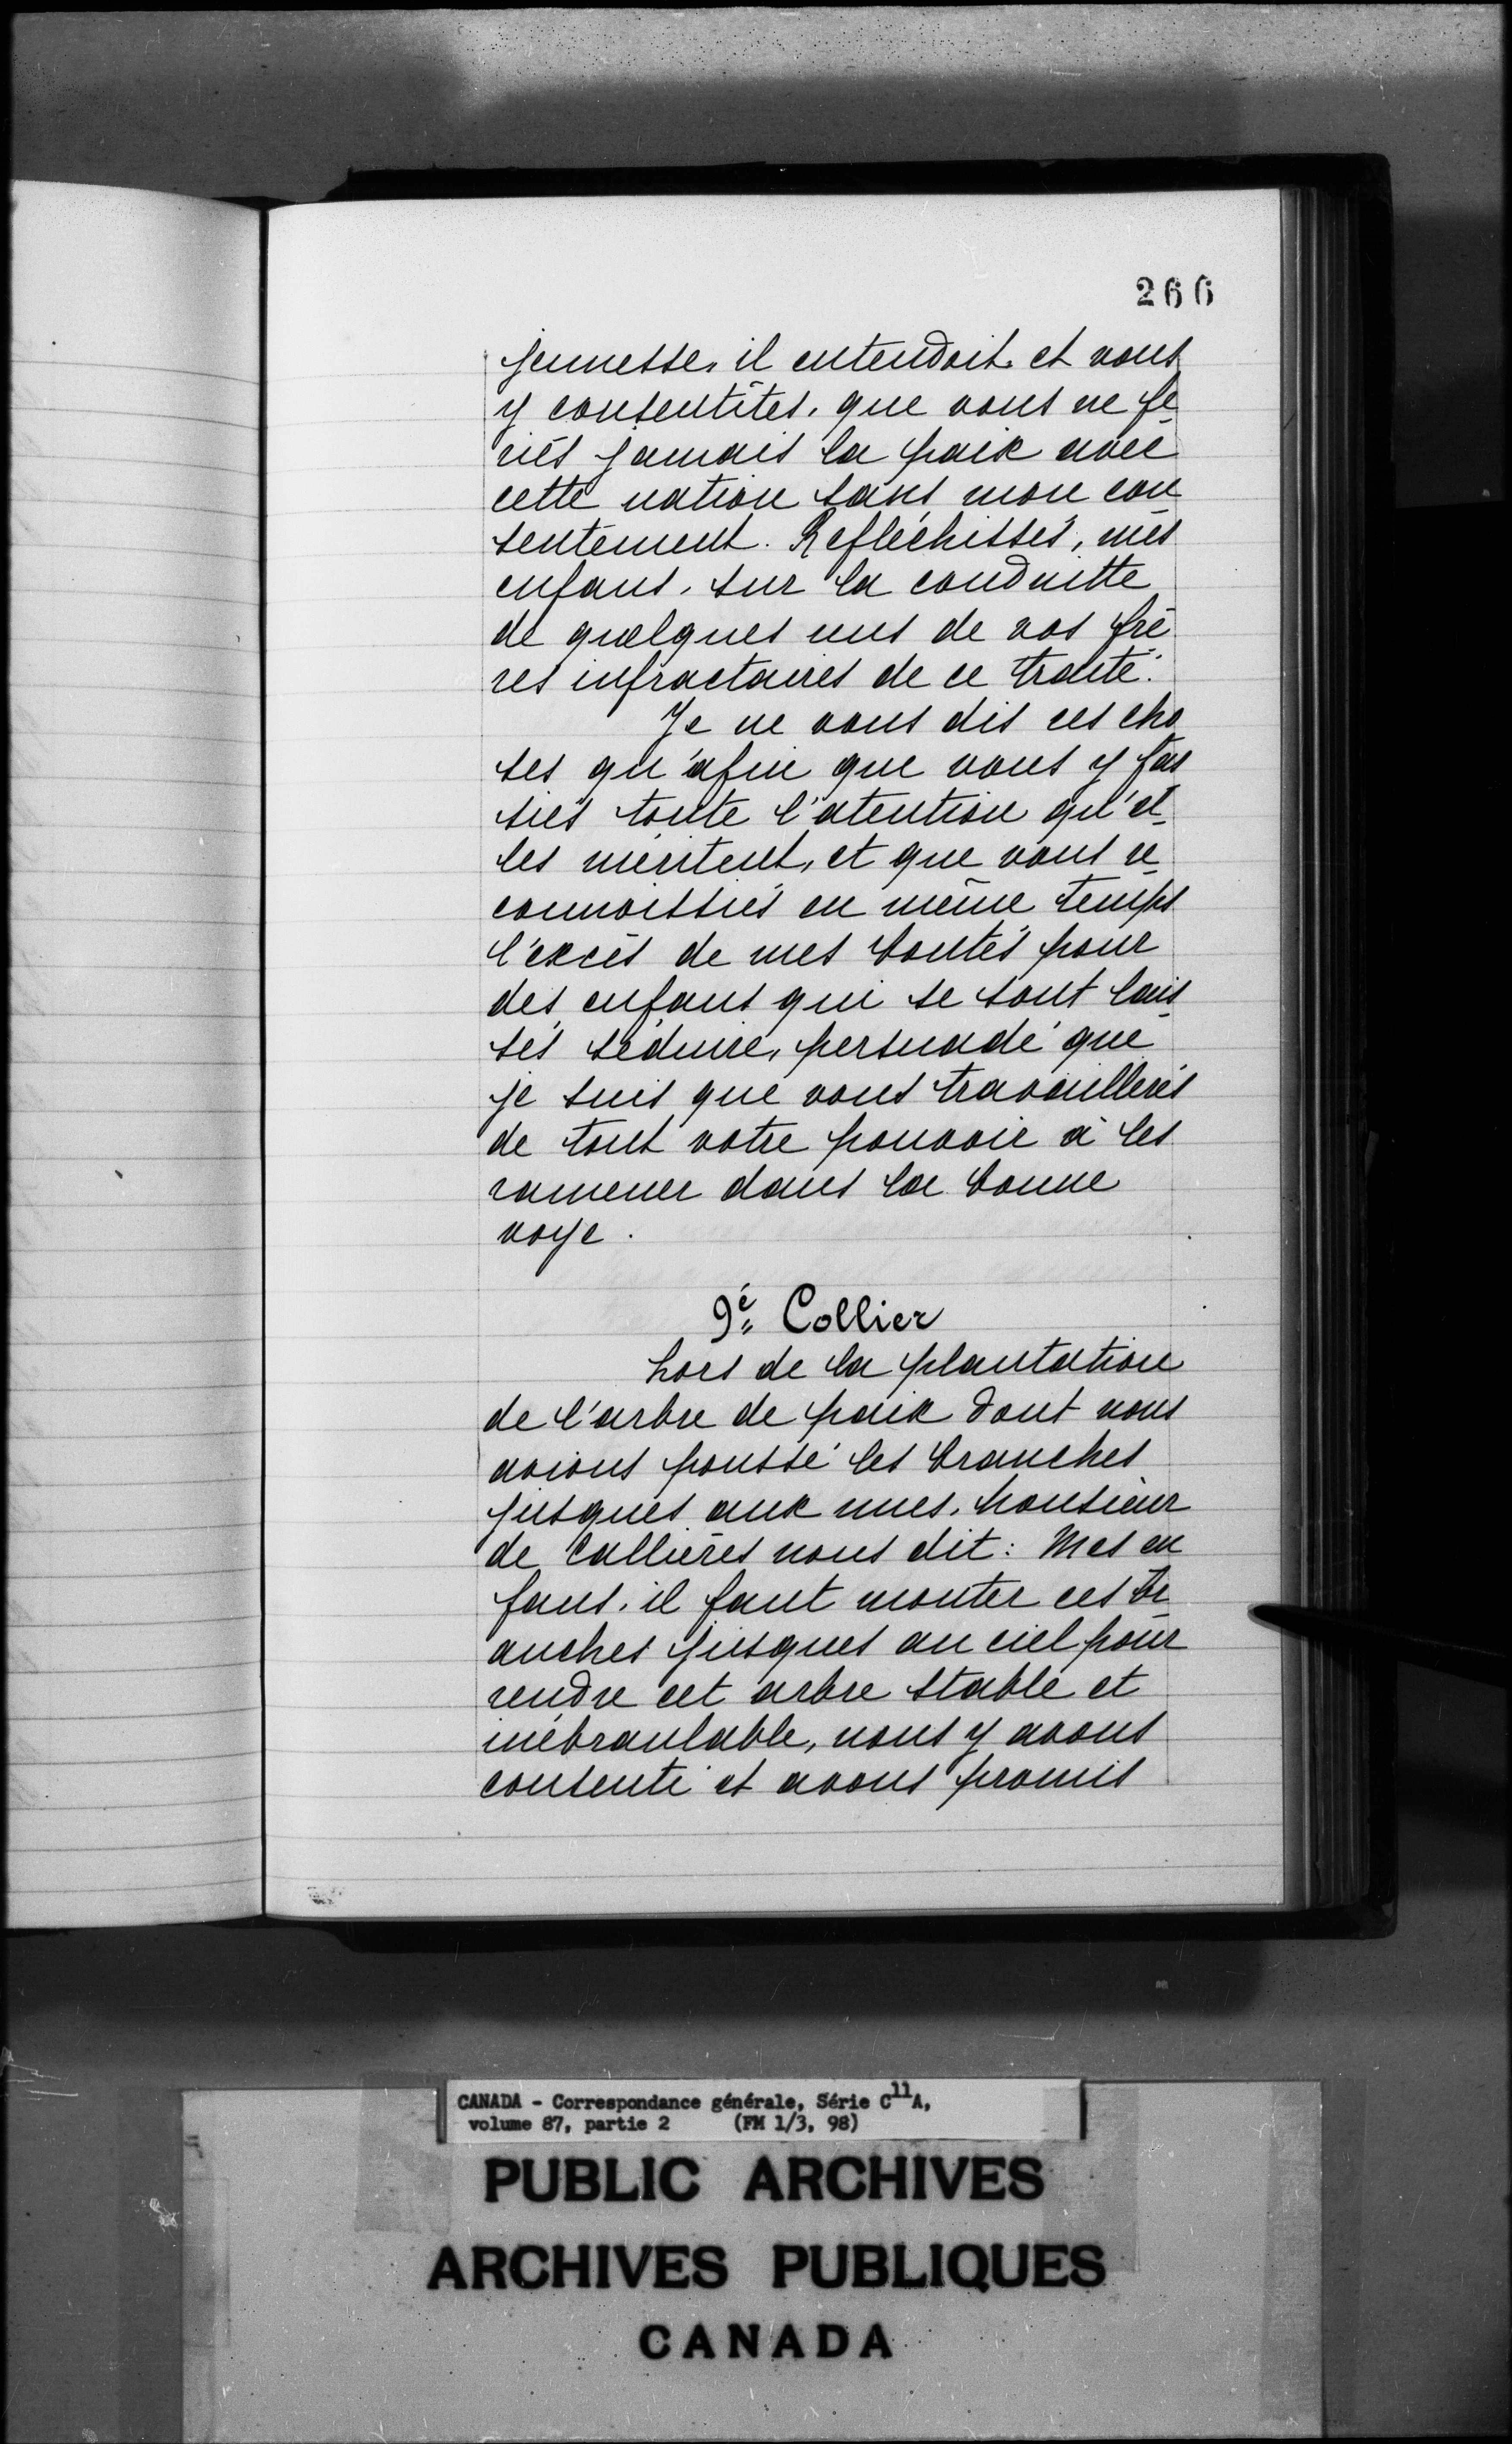 266
jeunesse, il entendoit et vous
y consentites, que vous ne fe
riés jamais la paix avec
cette nation sans mon con
sentement. Refléchissés, mes
enfans, sur la conduitte
de quelques uns de vos frè
res infractaires de ce traité.
Je ne vous dis ces cho
ses qu'afin que vous y fas
siés toute l'atention qu'el
les méritent, et que vous re
connoissiés en même temps
l'excès de mes bontés pour
des enfans qui se sont lais
sés séduire, persuadé que
je suis que vous travaillerés
de tout votre pouvoir à les
ramener dans la bonne
voye.
9e Collier
Lors de la plantation
de l'arbre de paix dont nous
avions poussé les branches
jusques aux nues, Monsieur
de Callières nous dit: Mes en
fans, il faut monter ces br
anches jusques au ciel pour
rendre cet arbre stable et
inébranlable, nous y avons
consenti et avons promis
CANADA - Correspondance générale, Série C11A,
volume 87, partie 2 (FM 1/3, 98)
PUBLIC ARCHIVES
ARCHIVES PUBLIQUES
CANADA